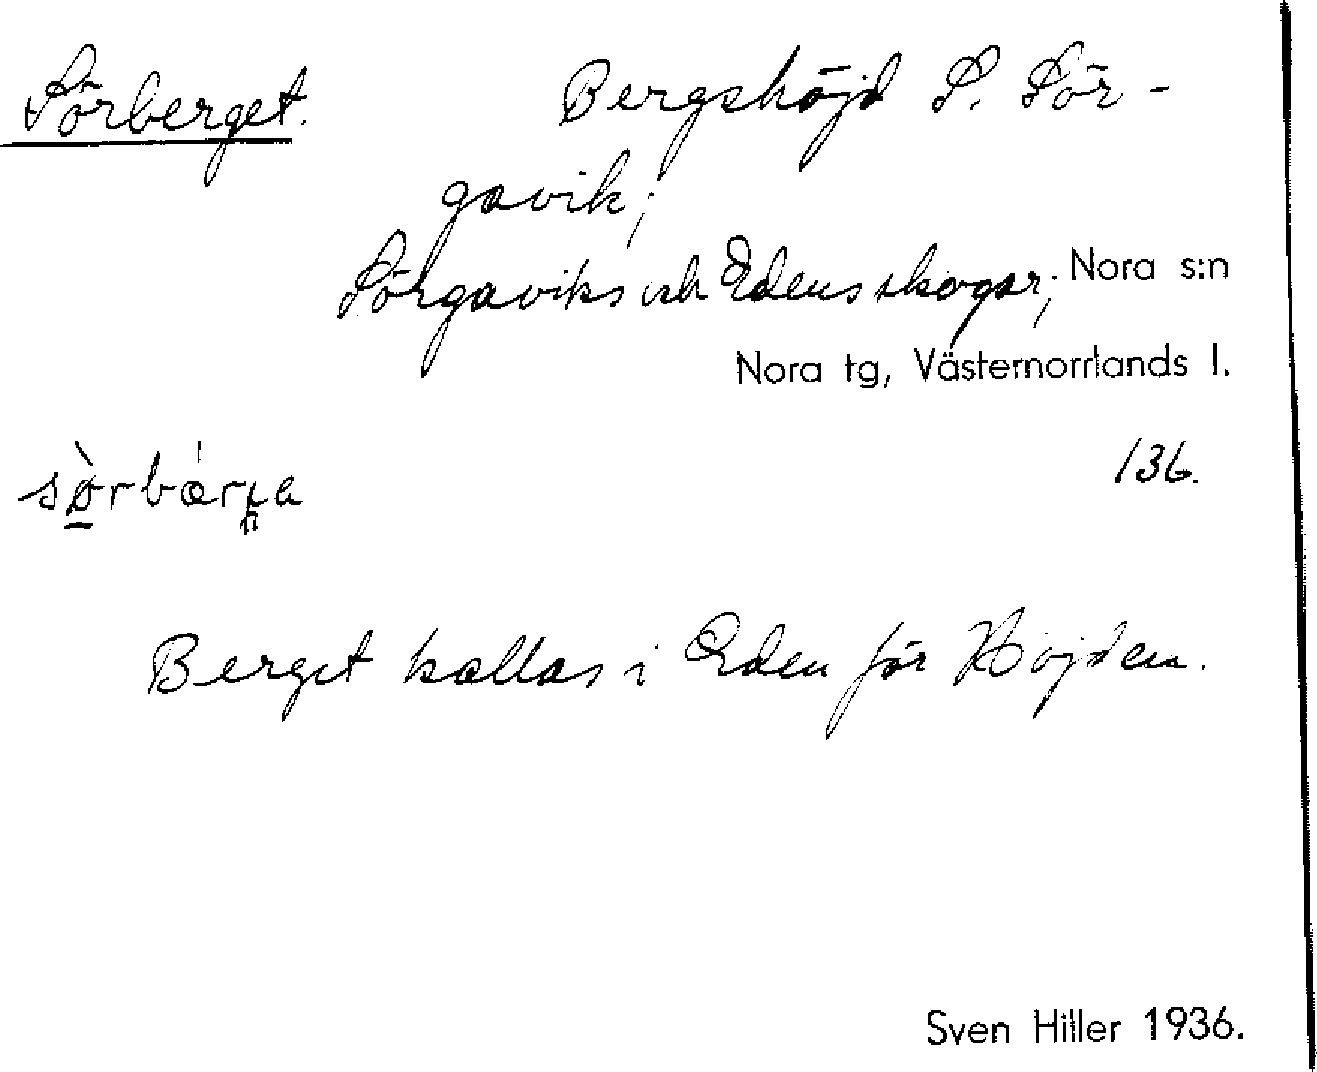 Sörberget. Bergshöjd S. Sör-
gavik;
Sörgaviks och Edens skogar; Nora s:n
Nora tg, Västernorrlands l.
136.
Berget kallas i Eden för Höjden.
Sven Hiller 1936.